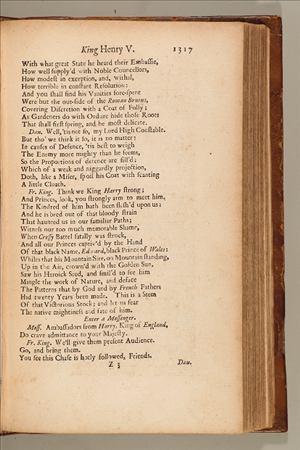 King Henry V. 1317
With what great State he heard their Embassie,
How well supply'd with Noble Councellors,
How modest in exception, and, withal,
How terrible in constant Resolution:
And you shall find his Vanities fore-spent
Were but the out-side of the Roman Brutus,
Covering Discretion with a Coat of Folly;
As Gardeners do with Ordure hide those Roots
That shall first spring, and be most delicate.
Dau. Well, 'tis not so, my Lord High Constable.
But tho' we think it so, it is no matter:
In causes of Defence, 'tis best to weigh
The Enemy more mighty than he seems,
So the Proportions of defence are fill'd;
Which of a weak and niggardly projection,
Doth, like a Miser, spoil his Coat with scanting
A little Cloath.
Fr. King. Think we King Harry strong;
And Princes, look, you strongly arm to meet him,
The Kindred of him hath been flesh'd upon us;
And he is bred out of that bloody strain
That haunted us in our familiar Paths;
Witness our too much memorable Shame,
When Cressy Battel fatally was strook,
And all our Princes captiv'd by the Hand
Of that black Name, Edward, black Prince of Wales:
Whiles that his Mountain Sire, on Mountain standing,
Up in the Air, crown'd with the Golden Sun,
Saw his Heroick Seed, and smil'd to see him
Mingle the work of Nature, and deface
The Patterns that by God and by French Fathers
Had twenty Years been made. This is a Stem
Of that Victorious Stock; and let us fear
The native mightiness and fate of him.
Enter a Messenger.
Mess. Ambassadors from Harry, King of England,
Do crave admittance to your Majesty.
Fr. King. We'll give them present Audience.
Go, and bring them.
You see this Chase is hotly followed, Friends.
Z 3 Dau.